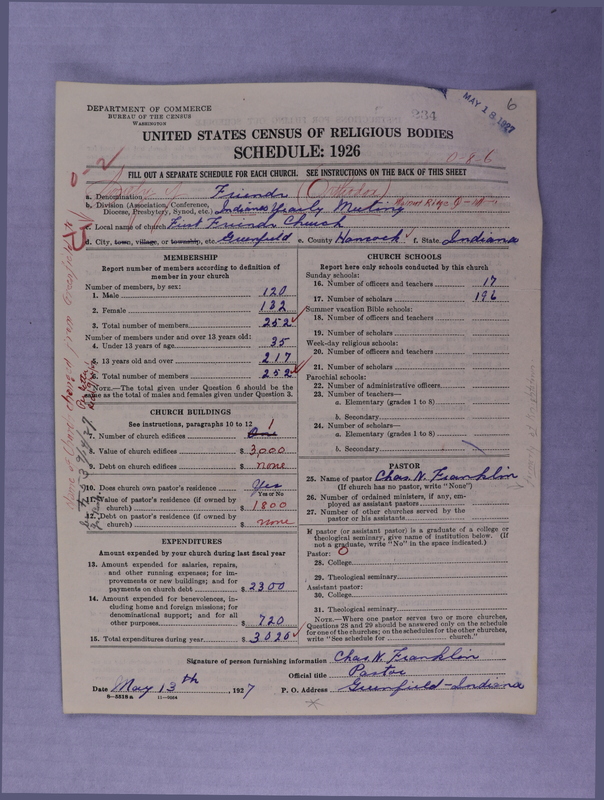 DEPARTMENT OF COMMERCE
BUREAU OF THE CENSUS
WASHINGTON
234
MAY 18 1927
6
UNITED STATES CENSUS OF RELIGIOUS BODIES
SCHEDULE: 1926
0-2
0-8-6
FILL OUT A SEPARATE SCHEDULE FOR EACH CHURCH. SEE INSTRUCTIONS ON THE BACK OF THIS SHEET
a. Denomination Friends (Orthodox)
b. Division (Association, Conference, Diocese, Presbytery, Synod, etc.) Indiana Yearly Meeting
c. Local name of church First Friends Church
d. City, town, village, or township, etc. Greenfield e. County Hancock f. State Indiana
MEMBERSHIP
Report number of members according to definition of member in your church
Number of members, by sex:
1. Male 120
2. Female 132
3. Total number of members 252
Number of members under and over 13 years old:
4. Under 13 years of age 35
5. 13 years old and over 217
6. Total number of members 252
NOTE.—The total given under Question 6 should be the same as the total of males and females given under Question 3.
CHURCH BUILDINGS
See instructions, paragraphs 10 to 12
7. Number of church edifices One 1
8. Value of church edifices $ 3,000
9. Debt on church edifices $ none
10. Does church own pastor's residence Yes
Yes or No
11. Value of pastor's residence (if owned by church) $ 1800
12. Debt on pastor's residence (if owned by church) $ none
EXPENDITURES
Amount expended by your church during last fiscal year
13. Amount expended for salaries, repairs, and other running expenses; for improvements or new buildings; and for payments on church debt $ 2300
14. Amount expended for benevolences, including home and foreign missions; for denominational support; and for all other purposes $ 720
15. Total expenditures during year $ 3020
CHURCH SCHOOLS
Report here only schools conducted by this church
Sunday schools:
16. Number of officers and teachers 17
17. Number of scholars 196
Summer vacation Bible schools:
18. Number of officers and teachers
19. Number of scholars
Week-day religious schools:
20. Number of officers and teachers
21. Number of scholars
Parochial schools:
22. Number of administrative officers
23. Number of teachers—
a. Elementary (grades 1 to 8)
b. Secondary
24. Number of scholars—
a. Elementary (grades 1 to 8)
b. Secondary
PASTOR
25. Name of pastor Chas. W. Franklin
(If church has no pastor, write "None")
26. Number of ordained ministers, if any, employed as assistant pastors
27. Number of other churches served by the pastor or his assistants
If pastor (or assistant pastor) is a graduate of a college or theological seminary, give name of institution below. (If not a graduate, write "No" in the space indicated.)
Pastor: 0
28. College
29. Theological seminary
Assistant pastor:
30. College
31. Theological seminary
NOTE.—Where one pastor serves two or more churches, Questions 28 and 29 should be answered only on the schedule for one of the churches; on the schedules for the other churches, write "See schedule for church."
Signature of person furnishing information Chas. W. Franklin
Official title Pastor
Date May 13th, 1927
P. O. Address Greenfield-Indiana
8-5518a
11-9264